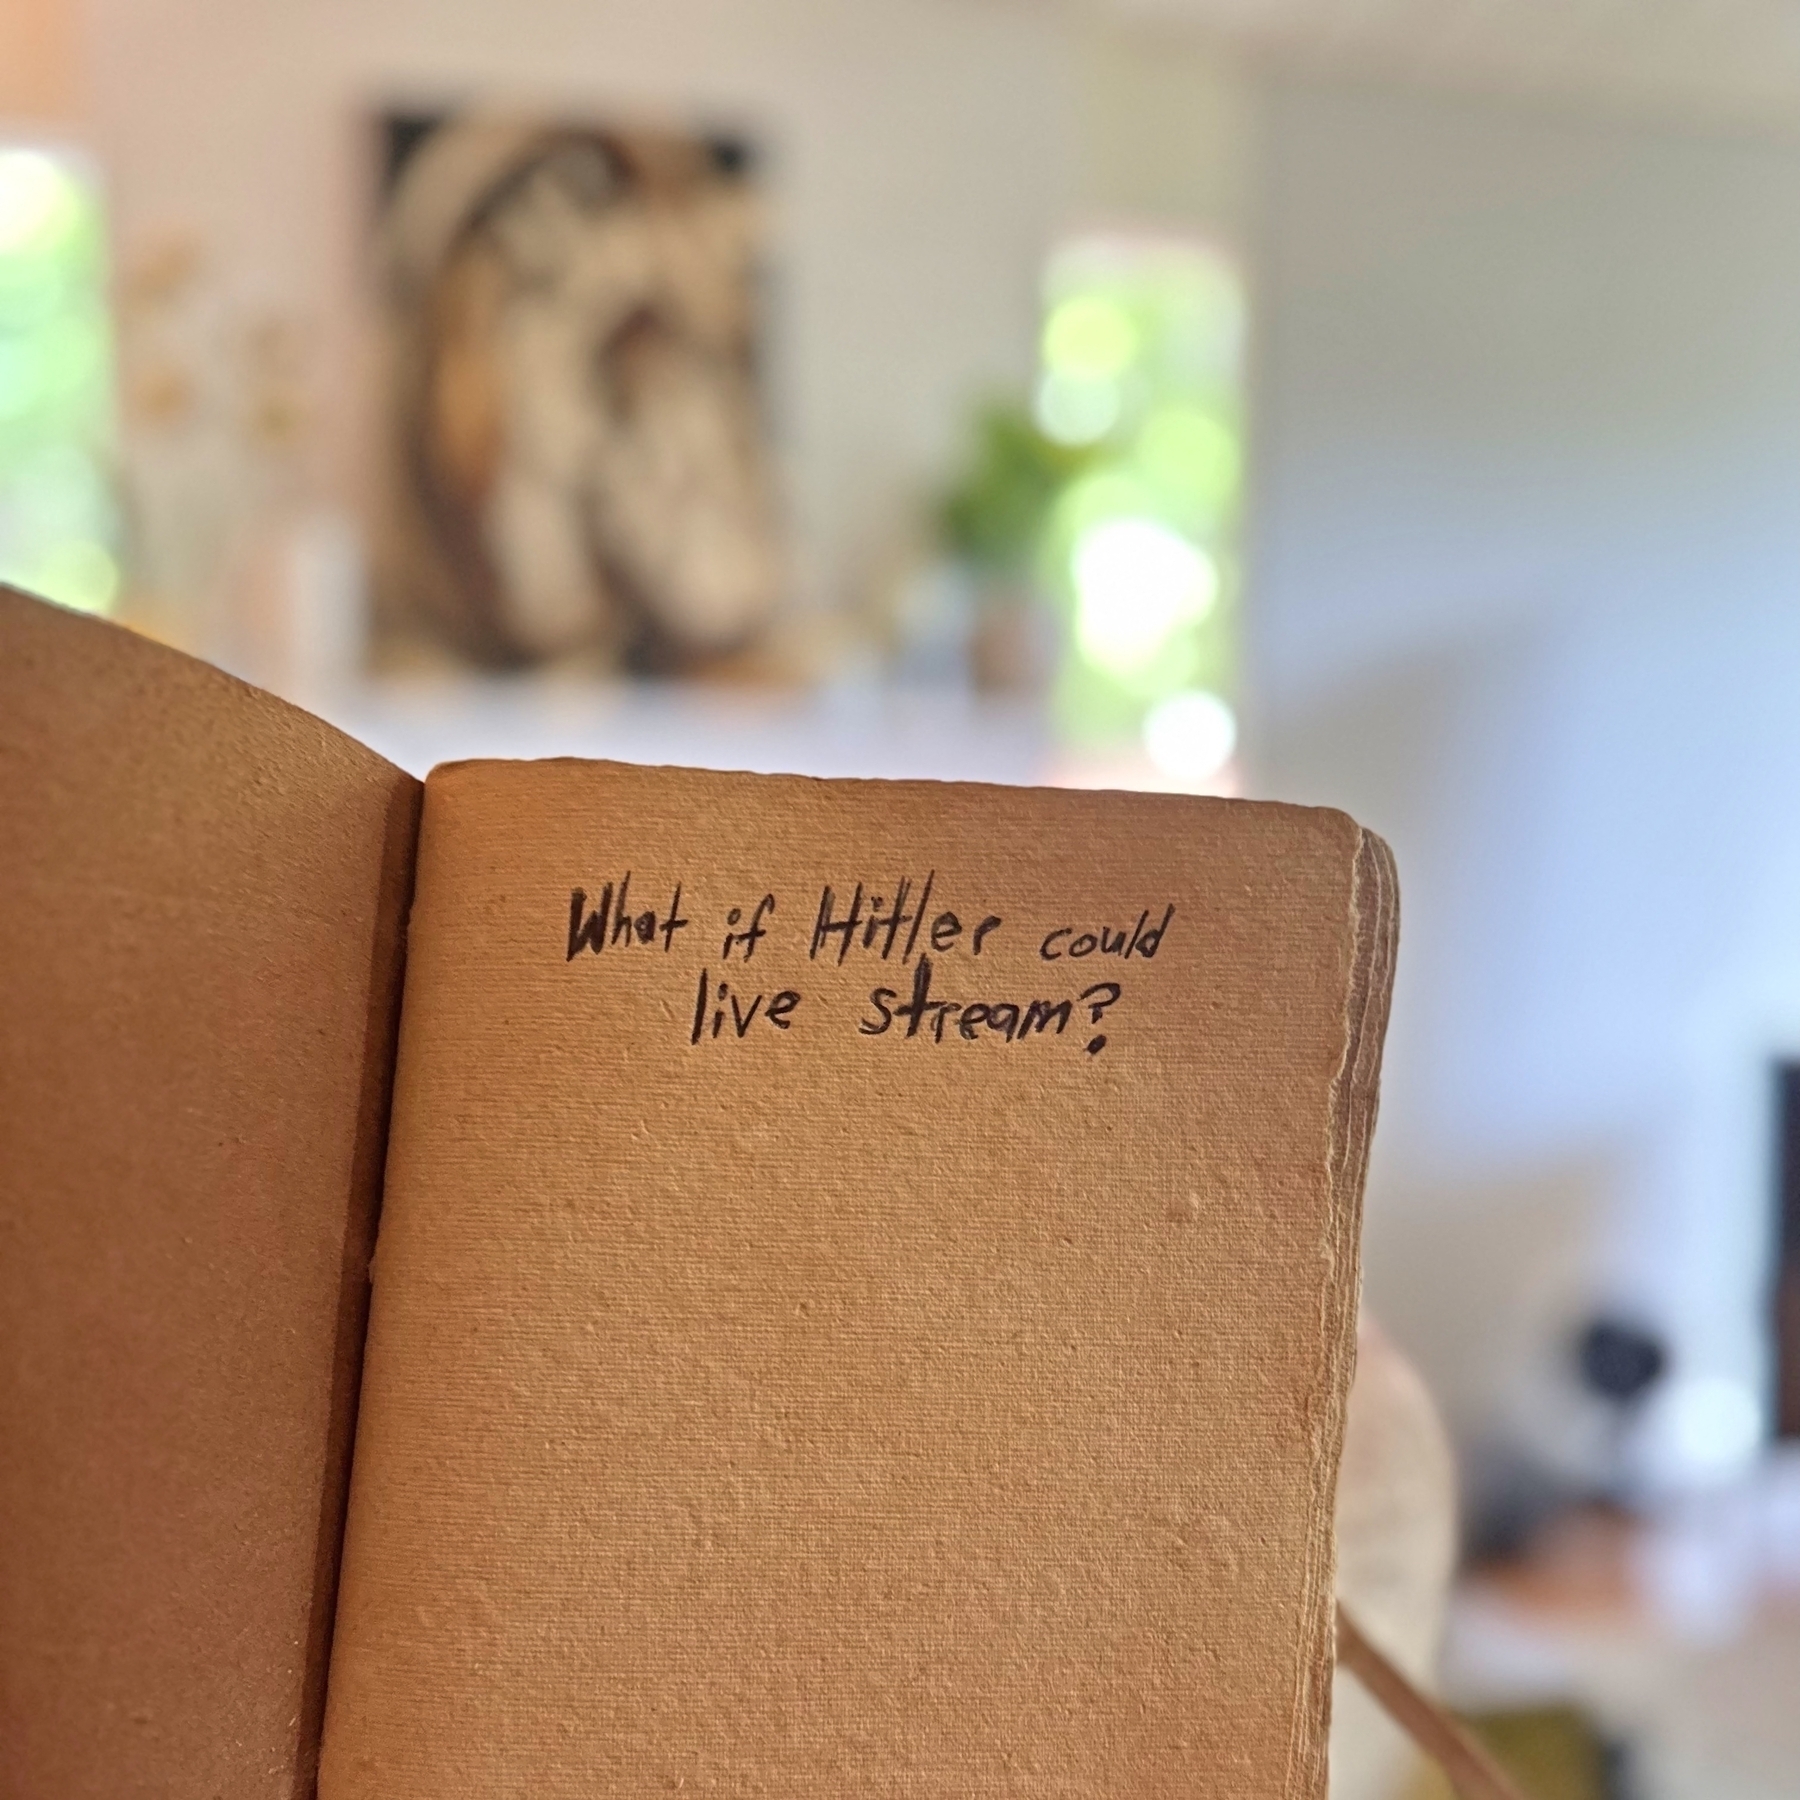 What if Hitler could
live stream?